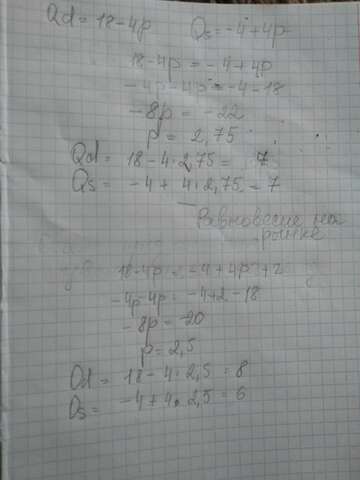 Qd = 18-4p Qs = -4+4p
18-4p = -4+4p
-4p-4p = -4-18
-8p = -22
p = 2,75
Qd = 18-4·2,75 = 7
Qs = -4+4·2,75 = 7
Равновесие на
рынке
18-4p = -4+4p+2
-4p-4p = -4+2-18
-8p = -20
p = 2,5
Qd = 18-4·2,5 = 8
Qs = -4+4·2,5 = 6